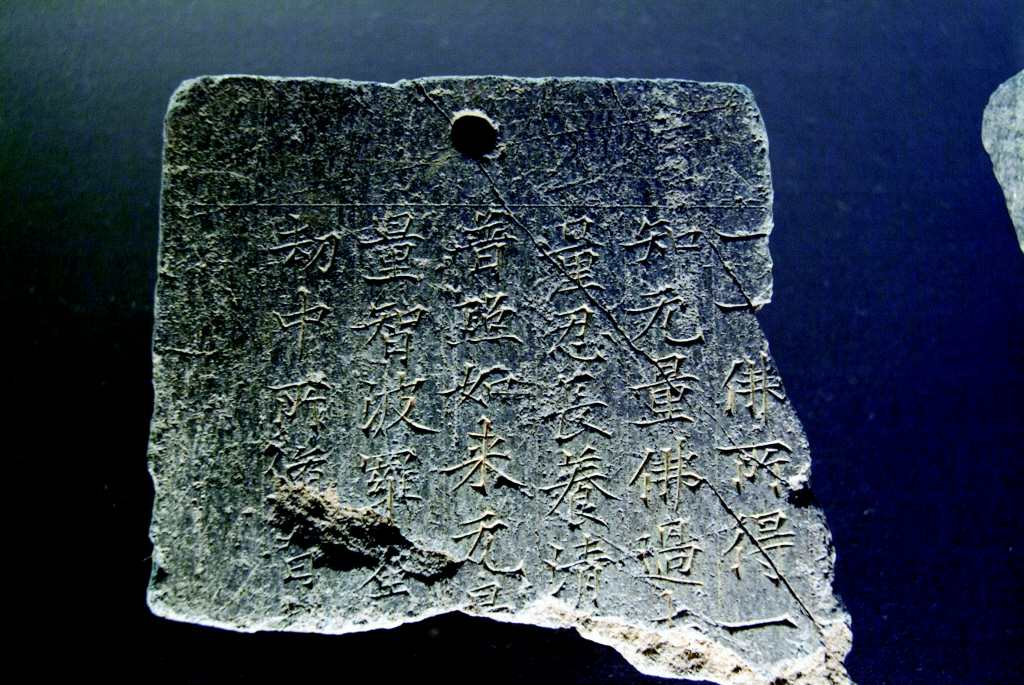 一一佛所得一
知无量佛過
量忍長養清
普照如来无
量智波羅
劫中所修